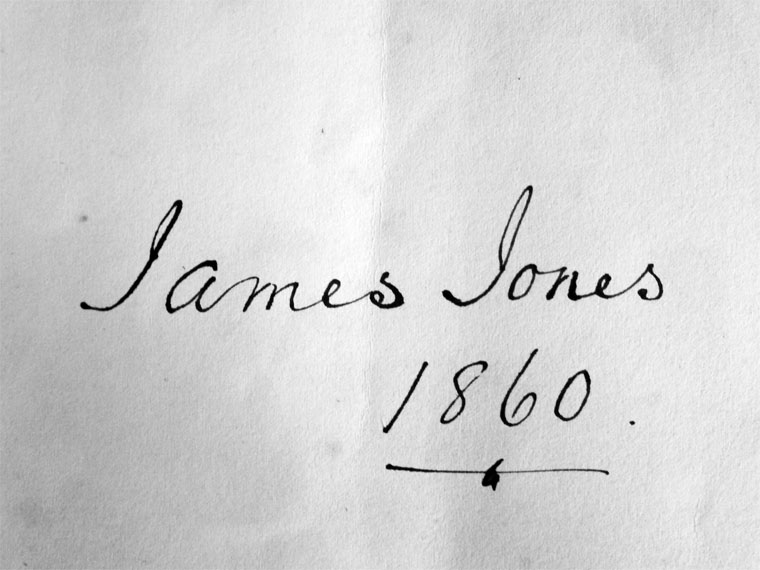 James Jones
1860.